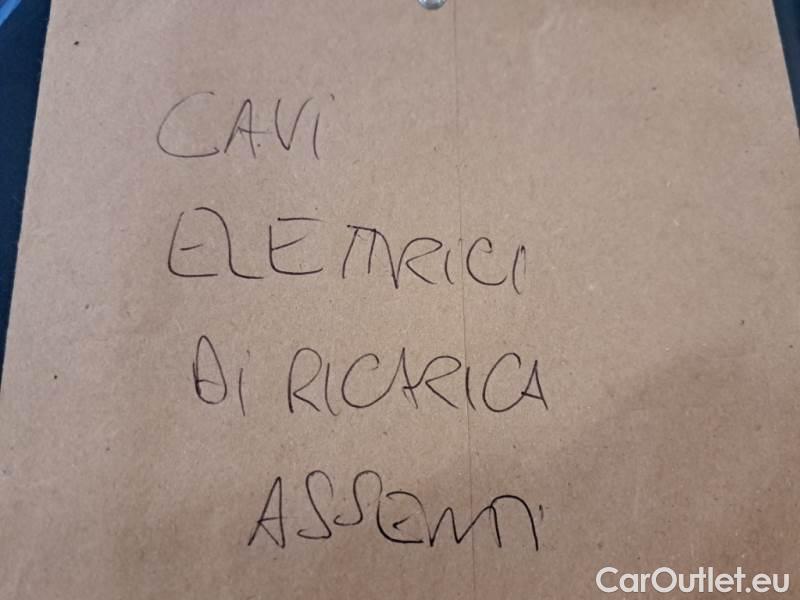 CAVI
ELETTRICI
DI RICARICA
ASSENTI
CarOutlet.eu